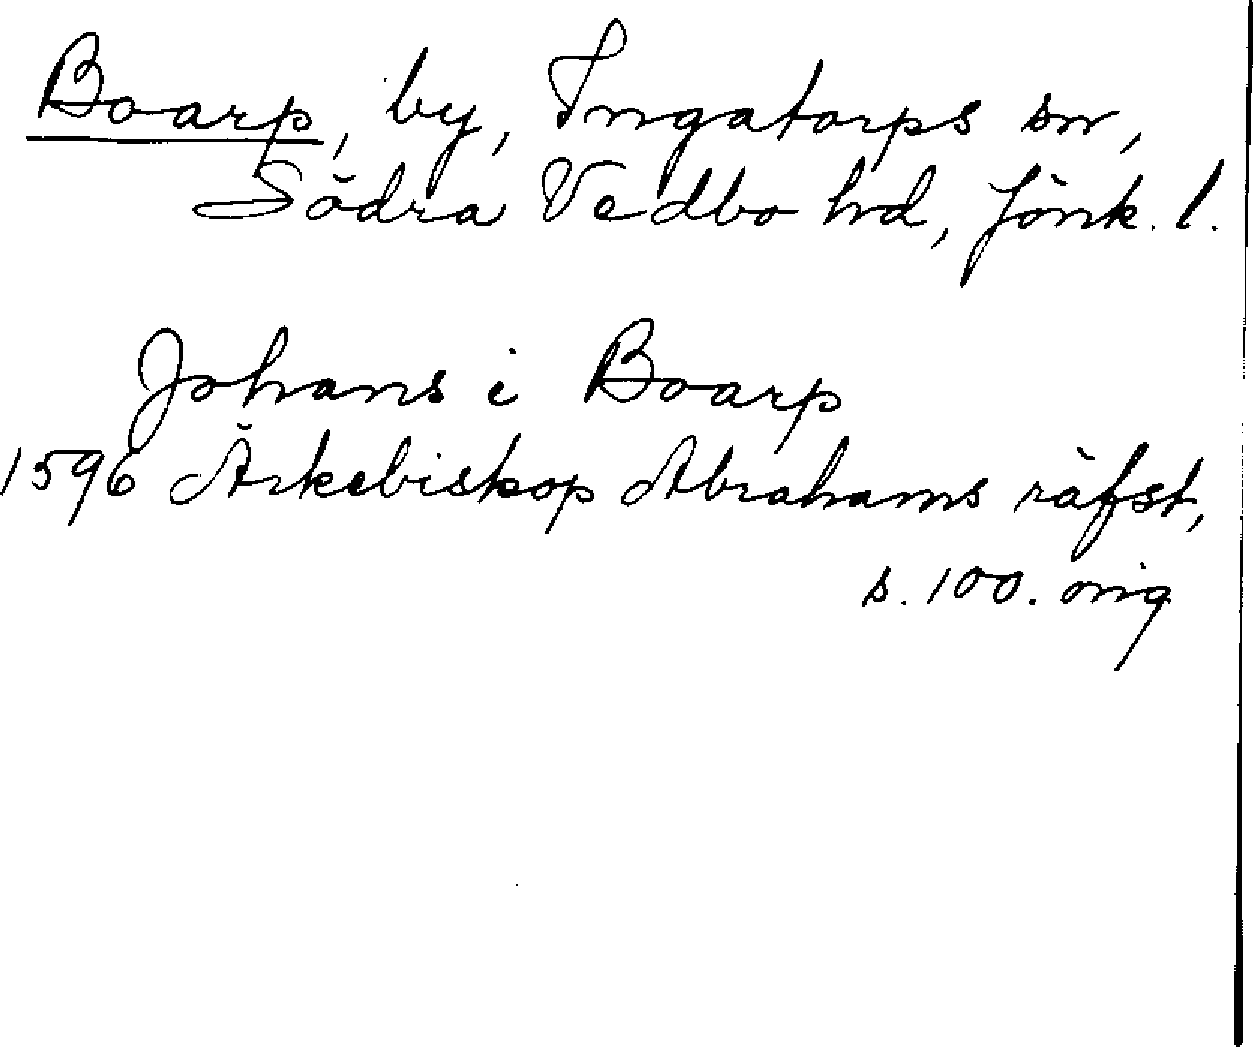 Boarp, by, Ingatorps sn,
Södra Vedbo hd, Jönk. l.
Johans i Boarp
1596 Ärkebiskop Abrahams räfst,
s. 100. orig